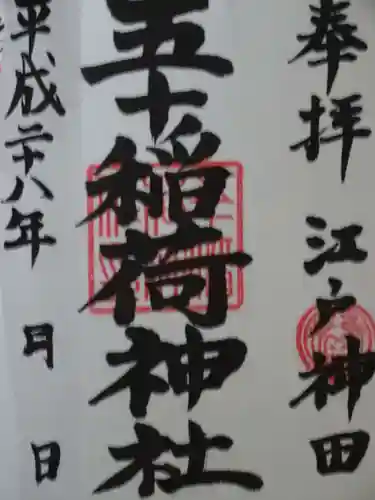 奉拝 江戸神田
五十稲荷神社
平成二十八年 月 日